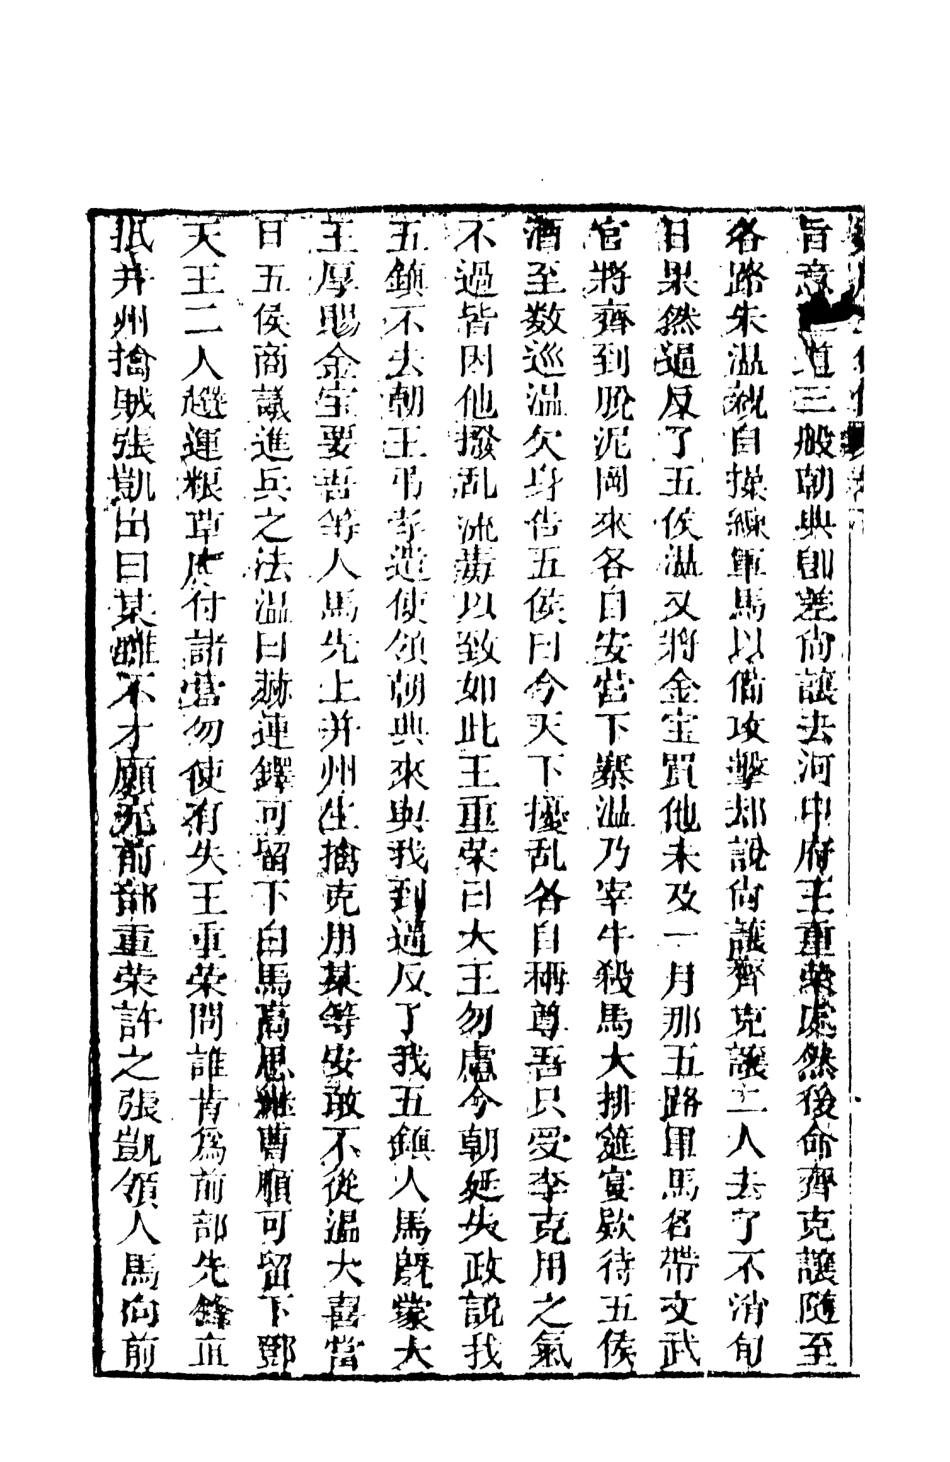 旨意道三般朝典卽差尙讓去河中府王重榮處然後命齊克讓隨至
各路朱温親自操練軍馬以備攻擊却說尙讓齊克讓二人去了不消旬
日果然逼反了五侯温又將金宝買他未及一月那五路軍馬各帶文武
官將齊到脫泥岡來各自安營下寨温乃宰牛殺馬大排筵宴欵待五侯
酒至数巡温欠身告五侯曰今天下擾乱各自稱尊吾只受李克用之氣
不過皆因他撥乱流毒以致如此王重荣曰大王勿慮今朝廷失政說我
五鎮不去朝王弔孝造使領朝典來與我到逼反了我五鎮人馬旣蒙大
王厚賜金宝要吾等人馬先上并州生擒克用某等安敢不從温大喜當
日五侯商議進兵之法温曰赫連鐸可留下白馬高思繼曹順可留下鄧
天王二人趲運粮草應付諸營勿使有失王重荣問誰肯爲前部先鋒直
抵并州擒賊張凱出曰某雖不才願充前部重荣許之張凱領人馬向前